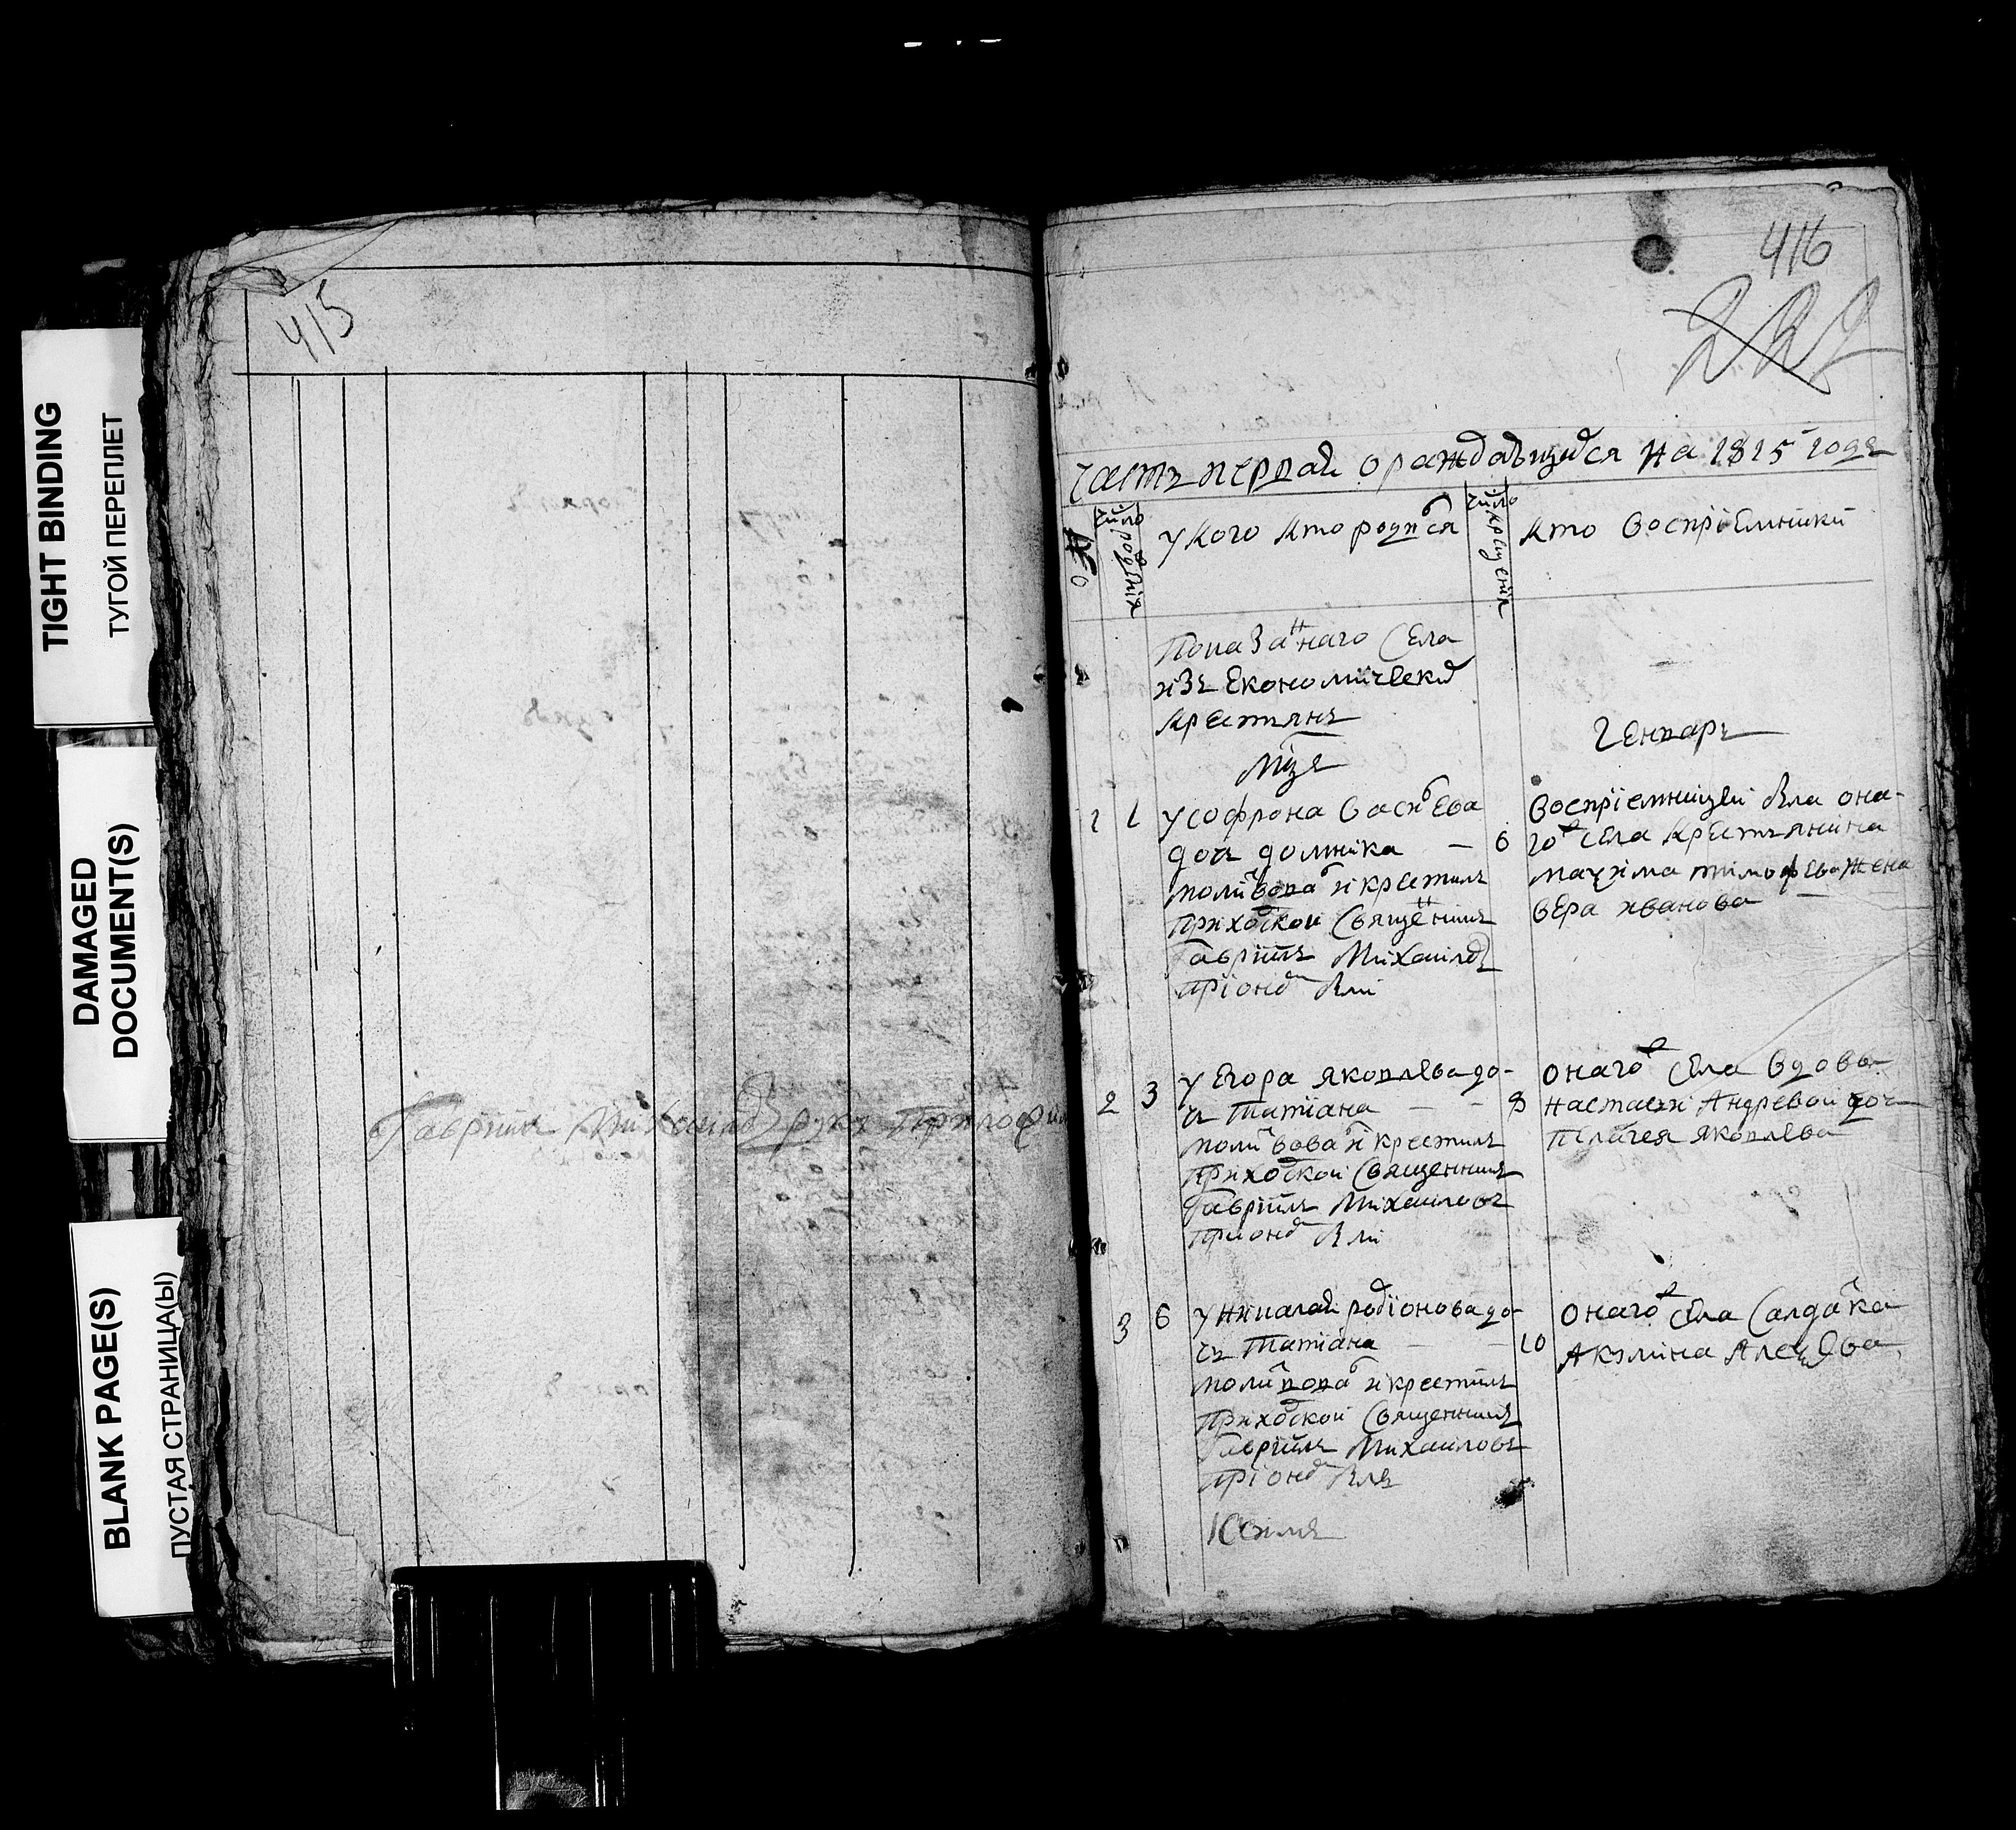 TIGHT BINDING
ТУГОЙ ПЕРЕПЛЕТ
DAMAGED
DOCUMENT(S)
BLANK PAGE(S)
ПУСТАЯ СТРАНИЦА(Ы)
415
Гаврiилъ Михаиловъ руку приложилъ
416
232
часть первая о раждающихся на 1815 годъ
число рождения
у кого кто родился
число крещенiя
кто воспрiемники
Показаннаго села
изъ Економическихъ
крестьянъ
мцъ
Генварь
1 1 у софрона васильева
дочь домника — 6
молитвовалъ и крестилъ
приходской священникъ
Гаврiилъ Михаиловъ
при ономъ были
воспрiемницей была она-
го села крестьянина
маѯима тимофева жена
вера иванова —
2 3 у Егора яковлева до-
чь татiана — — 8
молитвовалъ и крестилъ
приходской священникъ
Гаврiилъ Михаиловъ
при ономъ были
онаго села вдовы
настасьи Андревой дочь
пелагея яковлева
3 6 у николая родiонова до-
чь татiана — — 10
молитвовалъ и крестилъ
приходской священникъ
Гаврiилъ Михаиловъ
при ономъ былъ
онаго села салдатка
Акилина Алеѯѣва